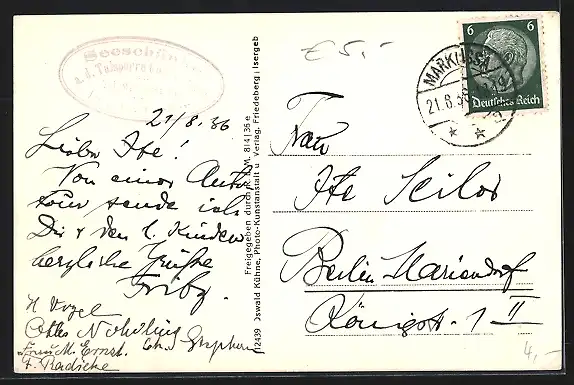 Seeschänke
a.d. Talsperre
21/8.36
Liebe Ite!
Von einer Auto
tour sende ich
Dir & den l. Kindern
herzliche Grüße
Fritz.
H Vogel
Otto
Ernst. Stephan
F. Radicke
12439 Oswald Kühne, Photo-Kunstanstalt u Verlag, Friedeberg | Isergeb
Freigegeben durch R.L.M. 814|36 e
£ 5,-
MARKLISSA
21.8.36
6 6
Deutsches Reich
Frau
Ite Seiler
Berlin Mariendorf
Königstr. 1 II
4,-